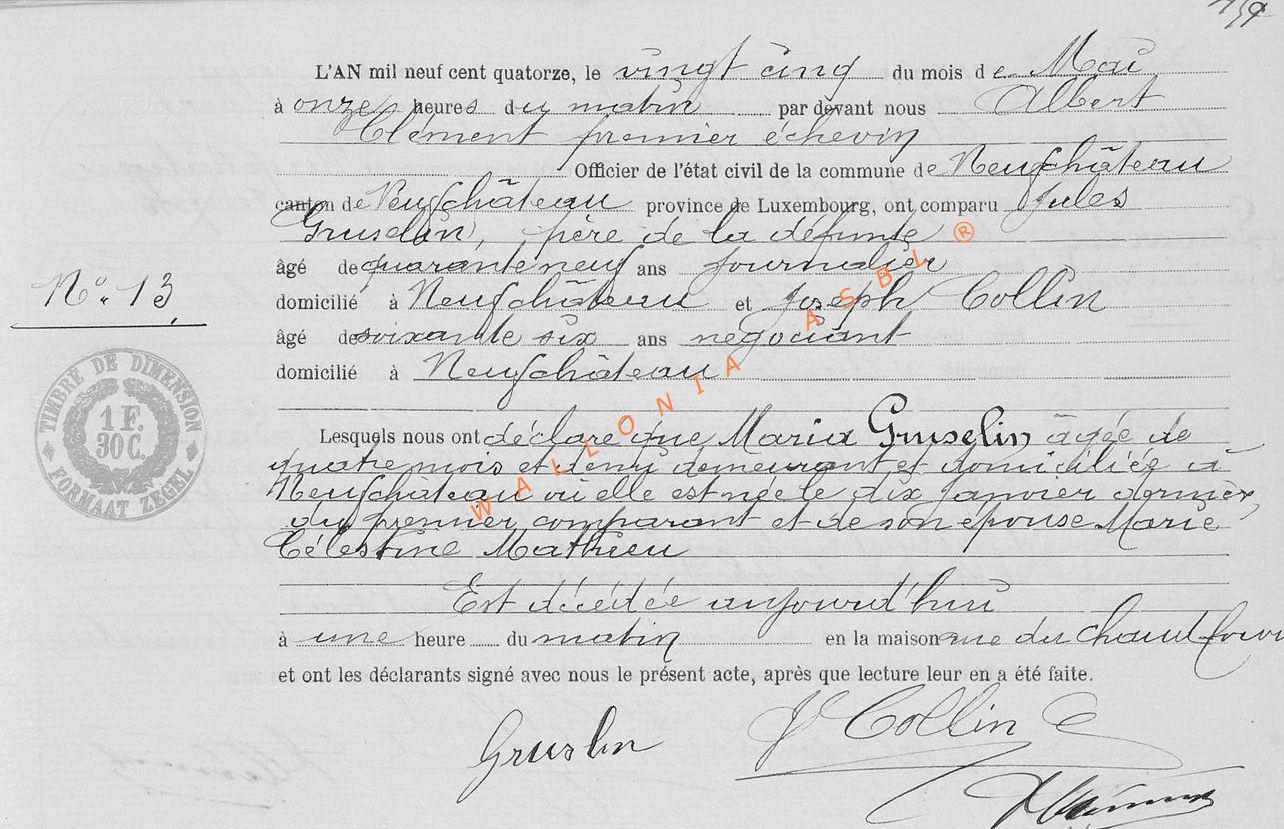 L'AN mil neuf cent quatorze, le vingt cinq du mois de Mai
à onze heures du matin par devant nous Albert
Clément premier échevin
Officier de l'état civil de la commune de Neufchâteau
canton de Neufchâteau province de Luxembourg, ont comparu Jules
Gruselin, père de la défunte
âgé de quarante neuf ans journalier
domicilié à Neufchâteau et Joseph Collin
N° 13
âgé de soixante six ans négociant
domicilié à Neufchâteau
TIMBRE DE DIMENSION
1 F.
30 C.
FORMAAT ZEGEL
Lesquels nous ont déclaré que Maria Gruselin âgée de
quatre mois et demi demeurant et domiciliée à
Neufchâteau où elle est née le dix janvier dernier,
du premier comparant et de son épouse Marie
Célestine Mathieu
Est décédée aujourd'hui
à une heure du matin en la maison rue du Chaud four
et ont les déclarants signé avec nous le présent acte, après que lecture leur en a été faite.
Gruslin
J Collin
WALLONIA ASBL ®